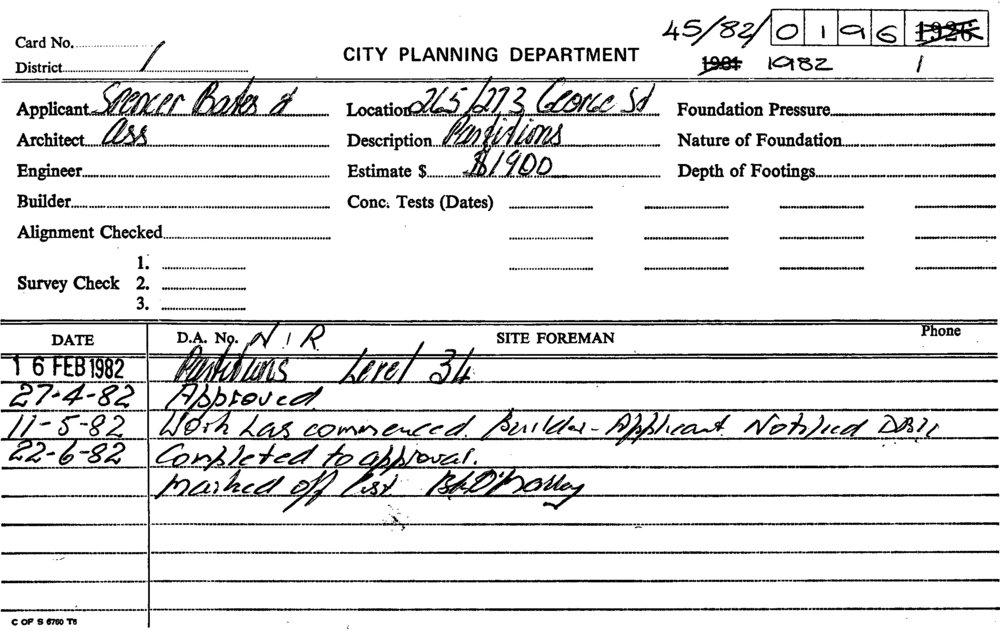 45/82/0196 1926
Card No.
CITY PLANNING DEPARTMENT
1981 1982 1
District 1
Applicant Spencer Bates &
Location 265/273 George St
Foundation Pressure
Architect Ass
Description Partitions
Nature of Foundation
Engineer
Estimate $ $1900
Depth of Footings
Builder
Conc. Tests (Dates)
Alignment Checked
1.
Survey Check 2.
3.
DATE D.A. No. N I R SITE FOREMAN Phone
16 FEB 1982 Partitions Level 34
27-4-82 Approved
11-5-82 Work has commenced. Builder-Applicant Notified
22-6-82 Completed to approval.
Marked off list
C OF S 6760 T6